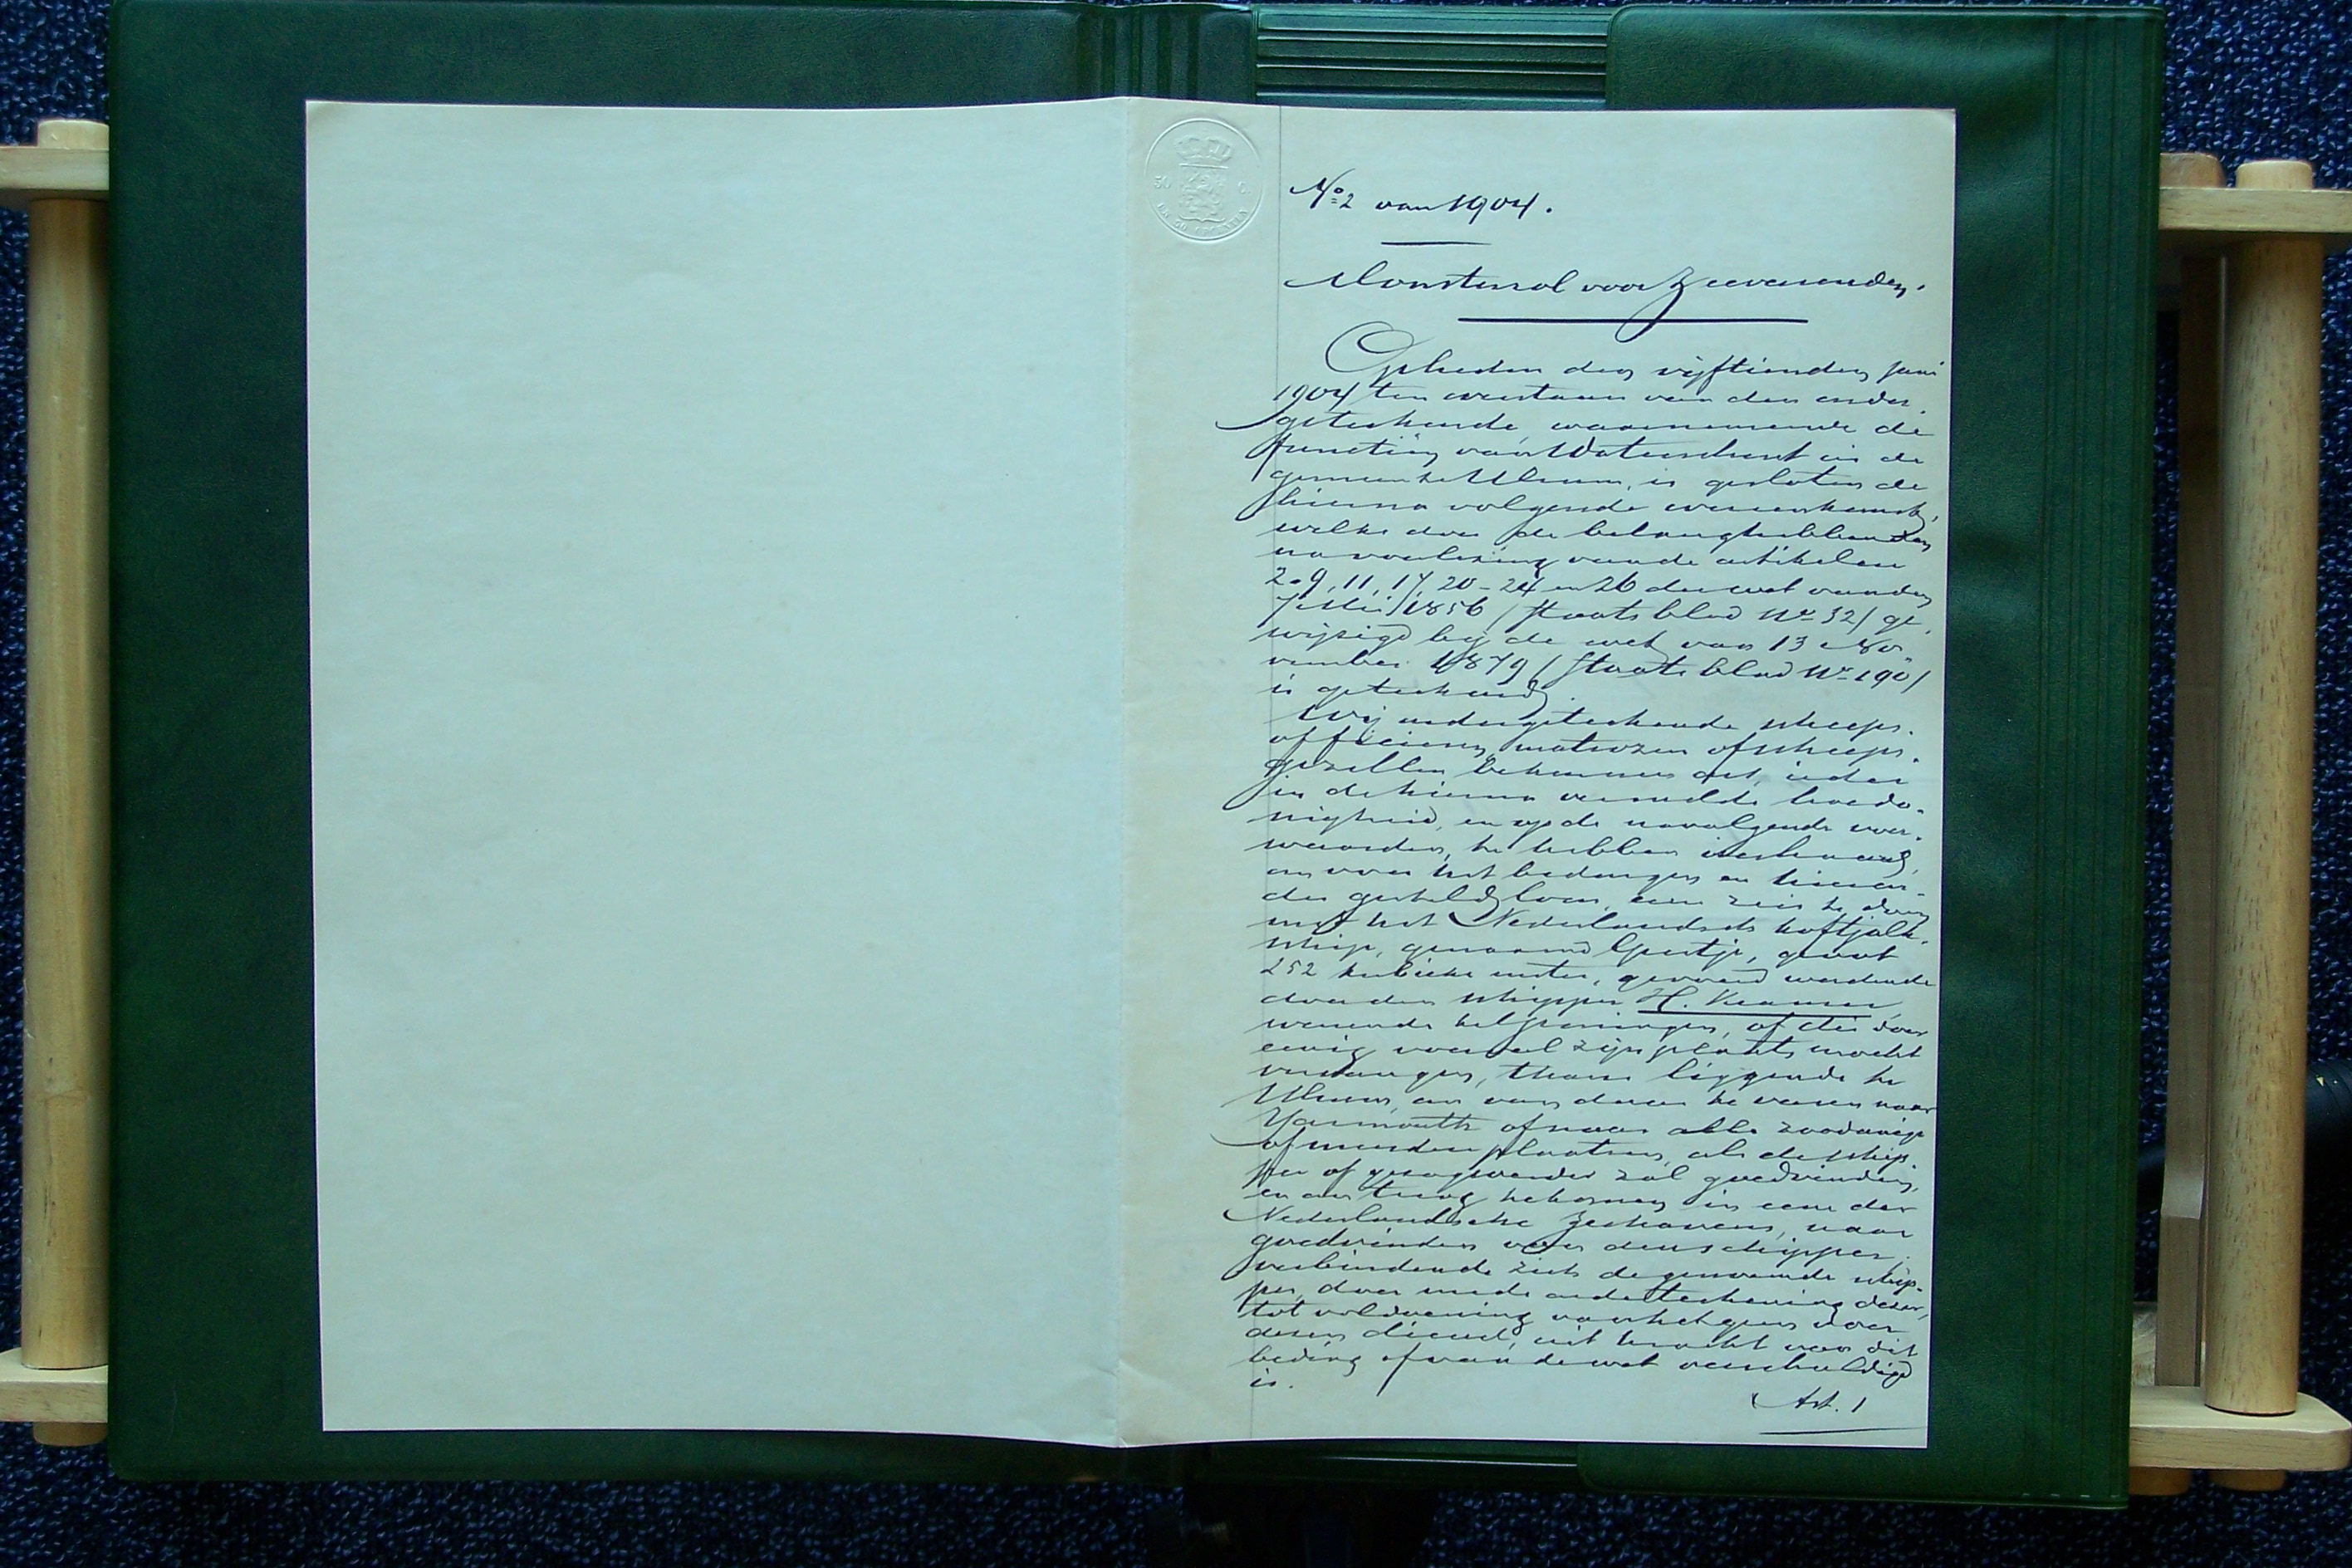 50 C.
No. 2 van 1904.
Monsterrol voor Zeevarenden.
Opheden den vijftienden juni
1904 ten overstaan van den onder-
geteekende waarnemende de
functiën van Waterschout in de
gemeente Ulrum, is gesloten de
hierna volgende overeenkomst,
welke door de belanghebbenden
na voorlezing van de artikelen
2-9, 11, 17, 20-24 en 26 der wet van den
7 Mei 1856 (Staatsblad No. 32) ge-
wijzigd bij de wet van 13 No-
vember 1879 (Staatsblad No. 190)
is geteekend.
Wij ondergeteekende scheeps-
officieren, matrozen of scheeps-
gezellen bekennen ons, ieder
in de hierna vermelde hoeda-
nigheid, en op de navolgende voor-
waarden, te hebben verhuurd,
om voor het bedongen en hieron-
der gestelde loon, een reis te doen
met het Nederlandsch koftjalk-
schip, genaamd Geertje, groot
252 kubieke meter, gevoerd wordende
door den schipper H. Kramer
wonende te Groningen, of die door
eenig voorval zijn plaats mocht
vervangen, thans liggende te
Ulrum, om van daar te varen naar
Yarmouth of naar alle zoodanige
of meerdere plaatsen, als de schip-
per of gezagvoerder zal goedvinden,
en om terug te komen in een der
Nederlandsche zeehavens, naar
goedvinden van den schipper.
verbindende zich de genoemde schip-
per, door mede onderteekening dezer,
tot voldoening van hetgeen voor
dezen dienst, uit kracht van dit
beding of van de wet verschuldigd
is.
Art. 1